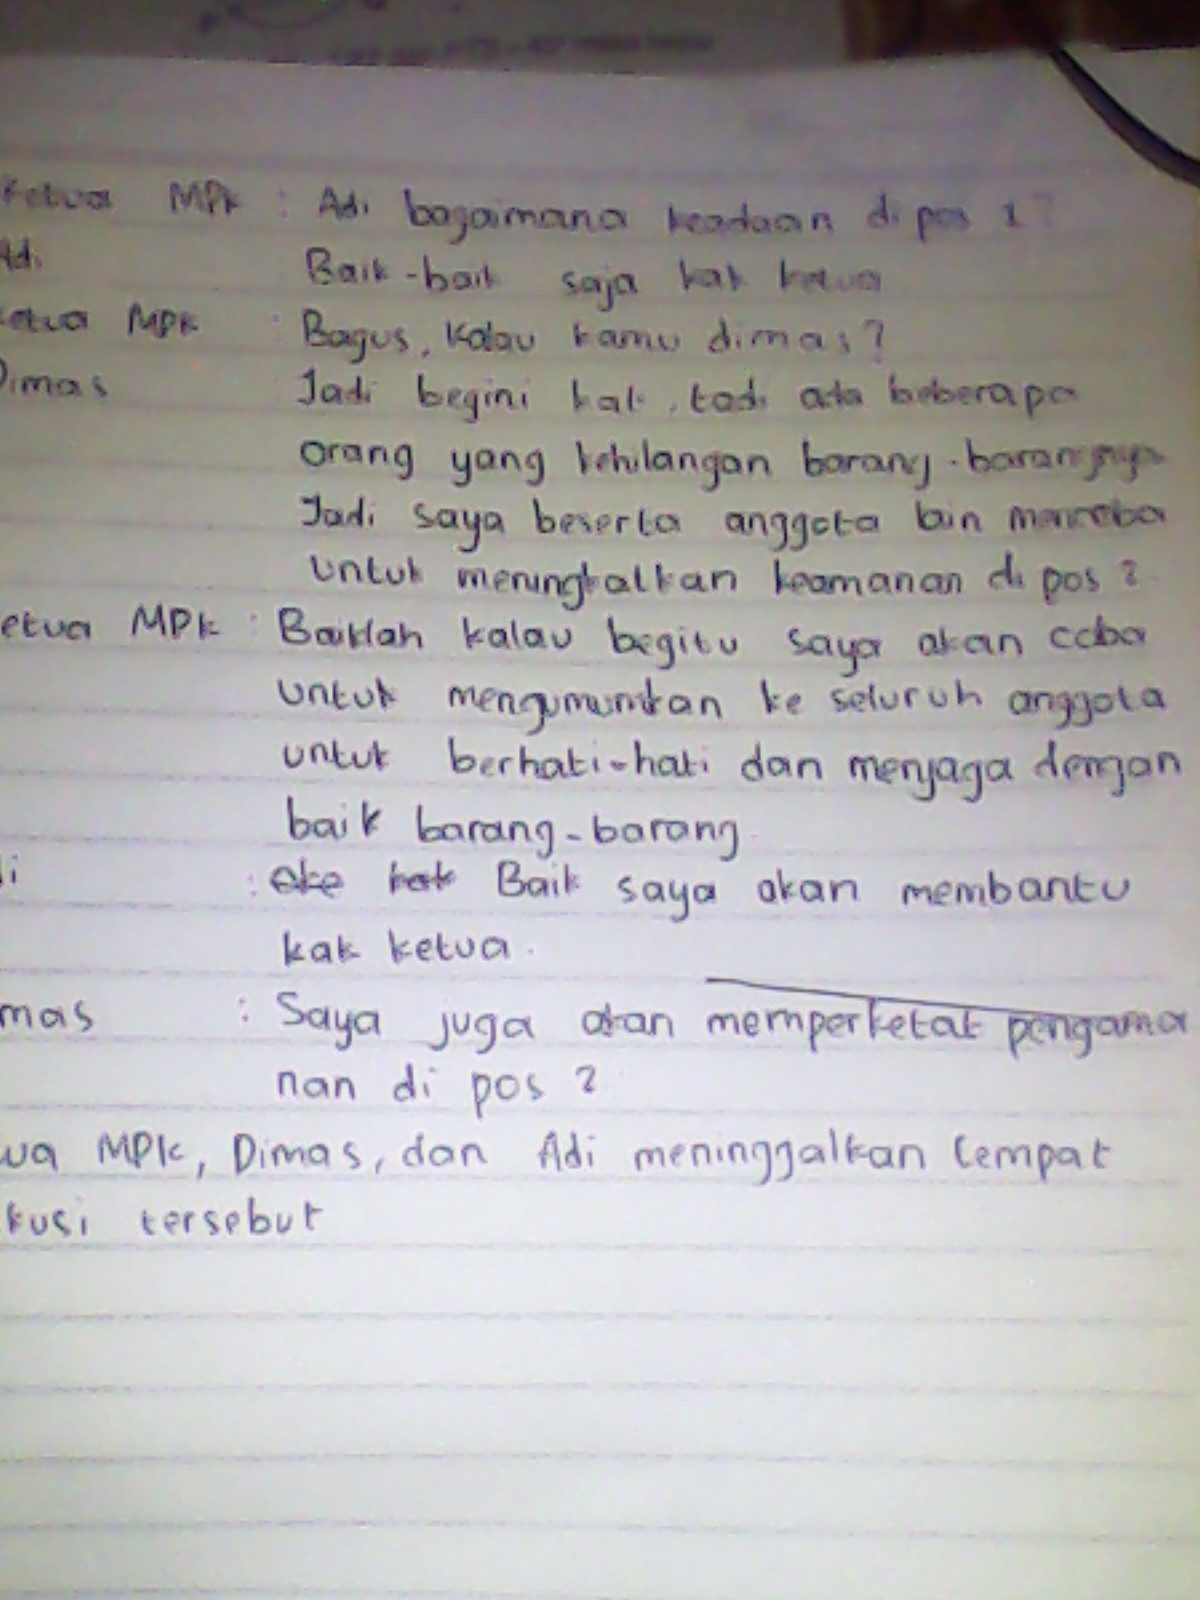 Ketua MPK : Adi bagaimana keadaan di pos 1?
Adi Baik-baik saja kak ketua
etua MPK : Bagus, kalau kamu dimas?
Dimas Jadi begini kak, tadi ada beberapa
orang yang kehilangan barang-barangnya
Jadi saya beserta anggota lain mencoba
untuk meningkatkan keamanan di pos 2
etua MPK : Baiklah kalau begitu saya akan coba
untuk mengumumkan ke seluruh anggota
untuk berhati-hati dan menjaga dengan
baik barang-barang
di : Oke kak Baik saya akan membantu
kak ketua.
mas : Saya juga akan memperketat pengama
nan di pos 2
ua MPK, Dimas, dan Adi meninggalkan tempat
kusi tersebut